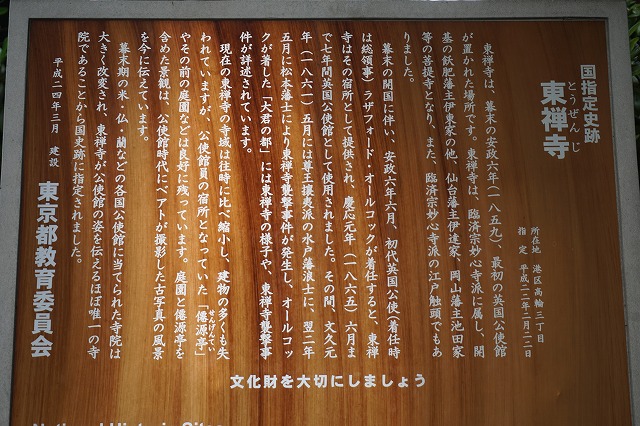 国指定史跡
東禅寺
とうぜんじ
所在地 港区高輪三丁目
指定 平成二二年二月二二日
東禅寺は、幕末の安政六年(一八五九)、最初の英国公使館
が置かれた場所です。東禅寺は、臨済宗妙心寺派に属し、開
基の飫肥藩主伊東家の他、仙台藩主伊達家、岡山藩主池田家
等の菩提寺となり、また、臨済宗妙心寺派の江戸触頭でもあ
りました。
幕末の開国に伴い、安政六年六月、初代英国公使(着任時
は総領事)ラザフォード・オールコックが着任すると、東禅
寺はその宿所として提供され、慶応元年(一八六五)六月ま
で七年間英国公使館として使用されました。その間、文久元
年(一八六一)五月には尊王攘夷派の水戸藩浪士に、翌二年
五月に松本藩士により東禅寺襲撃事件が発生し、オールコッ
クが著した『大君の都』には東禅寺の様子や、東禅寺襲撃事
件が詳述されています。
現在の東禅寺の寺域は往時に比べ縮小し、建物の多くも失
われていますが、公使館員の宿所となっていた「僊源亭」
せんげんてい
やその前の庭園などは良好に残っています。庭園と僊源亭を
含めた景観は、公使館時代にベアトが撮影した古写真の風景
を今に伝えています。
幕末期の米・仏・蘭などの各国公使館に当てられた寺院は
大きく改変され、東禅寺が公使館の姿を伝えるほぼ唯一の寺
院であることから国史跡に指定されました。
平成二四年三月 建設
東京都教育委員会
文化財を大切にしましょう
National Historic Sites